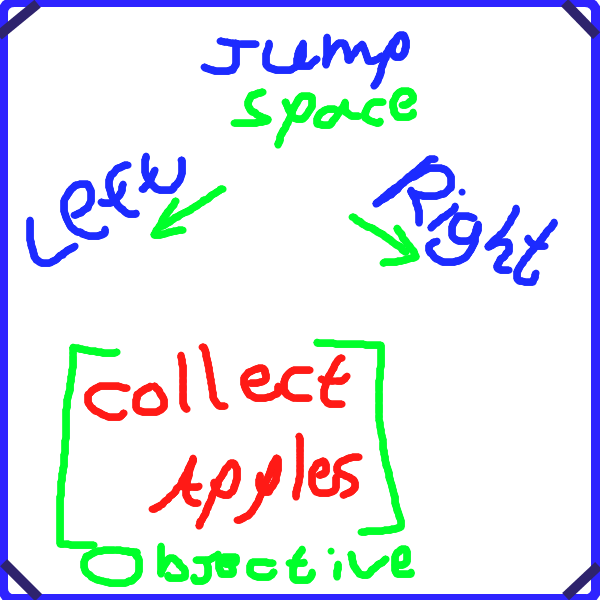 Jump
space
Left
Right
collect
Apples
Objective